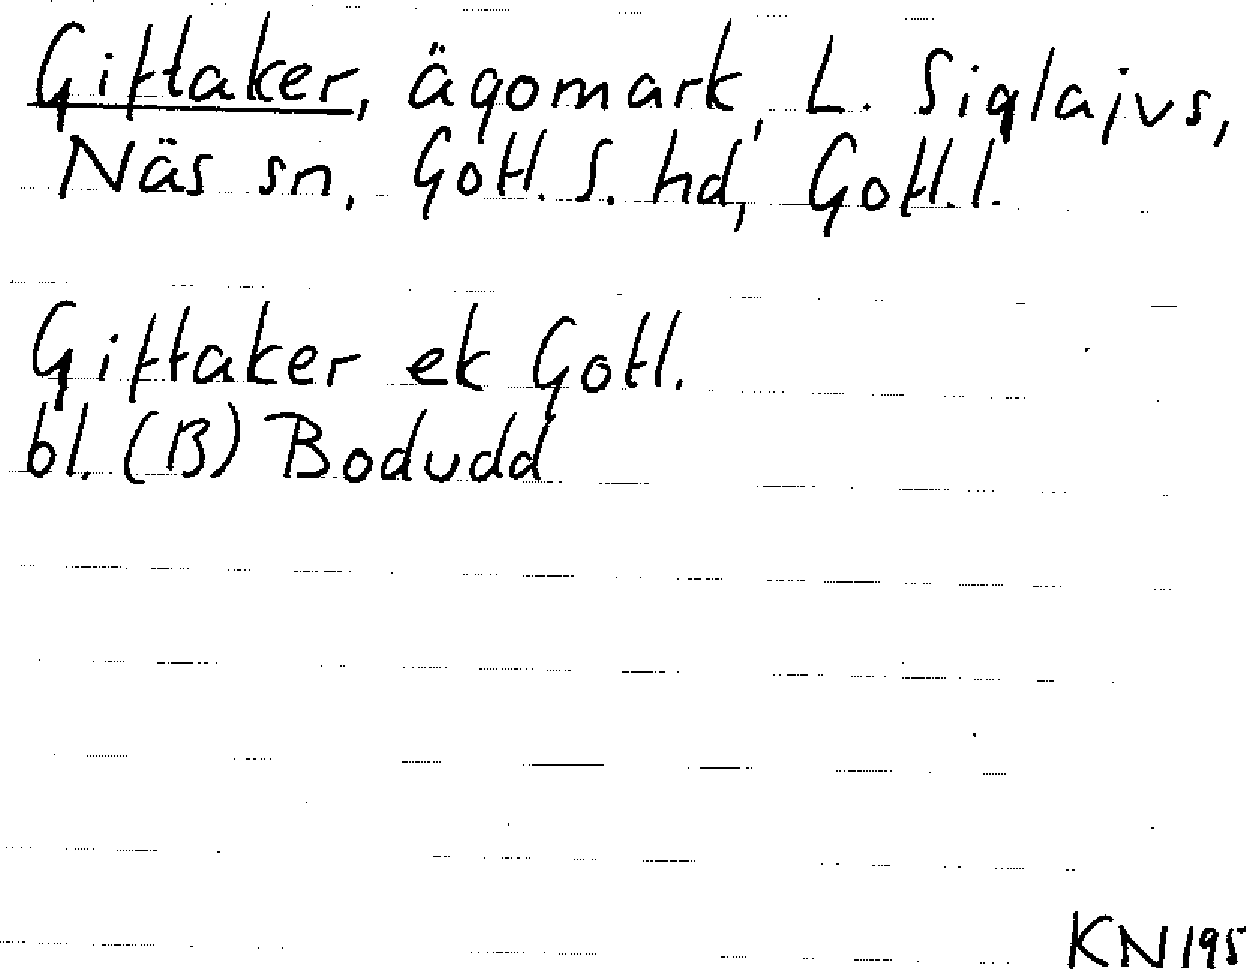 Giftaker, ägomark, L. Siglajvs,
Näs sn, Gotl. S. hd, Gotl. l.
Giftaker ek Gotl.
bl. (B) Bodudd
KN 195